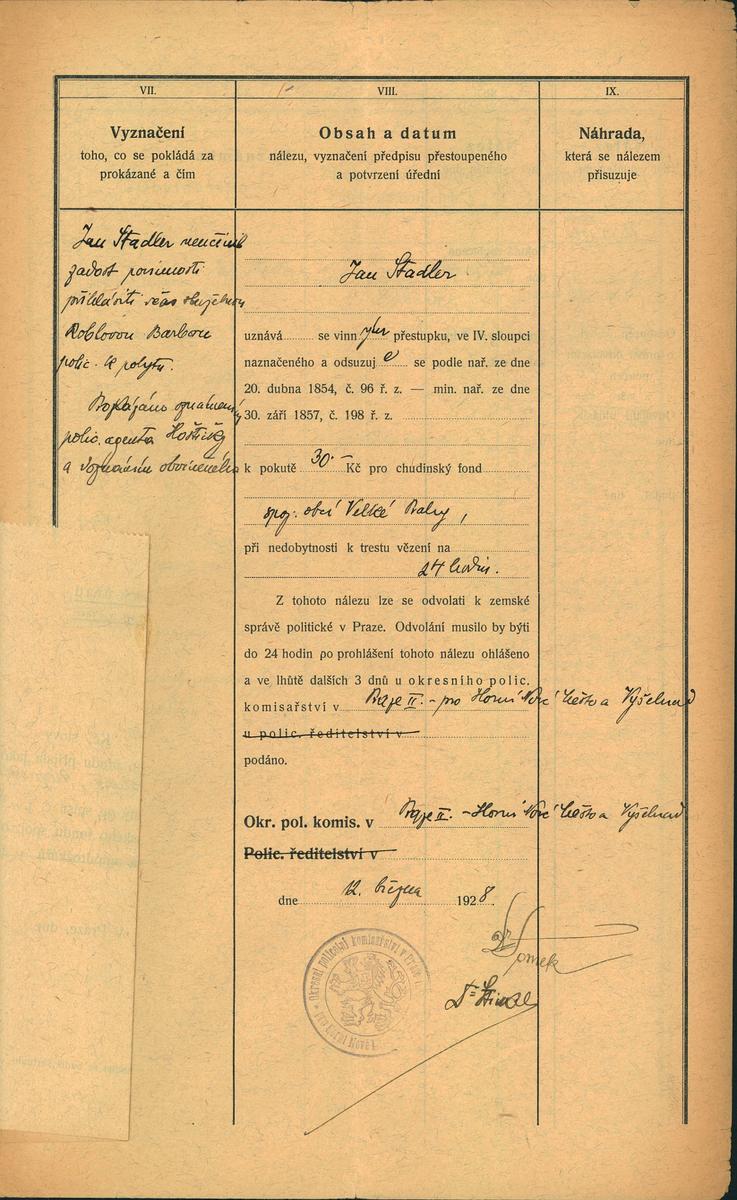 VII.
Vyznačení
toho, co se pokládá za
prokázané a čím
VIII.
Obsah a datum
nálezu, vyznačení předpisu přestoupeného
a potvrzení úřední
IX.
Náhrada,
která se nálezem
přisuzuje
Jan Stadler neučinil
zadost povinnosti
přihlásiti včas služebnou
Barboru
polic. k pobytu.
polic. agenta
a doznáním obviněného
Jan Stadler
uznává se vinným přestupku, ve IV. sloupci
naznačeného a odsuzuje se podle nař. ze dne
20. dubna 1854, č. 96 ř. z. — min. nař. ze dne
30. září 1857, č. 198 ř. z.
k pokutě 30.– Kč pro chudinský fond
spoj. obcí Velké Prahy,
při nedobytnosti k trestu vězení na
24 hodin.
Z tohoto nálezu lze se odvolati k zemské
správě politické v Praze. Odvolání musilo by býti
do 24 hodin po prohlášení tohoto nálezu ohlášeno
a ve lhůtě dalších 3 dnů u okresního polic.
komisařství v Praze II. – pro Horní Nové Město a Vyšehrad
u polic. ředitelství v
podáno.
Okr. pol. komis. v Praze II. – Horní Nové Město a Vyšehrad
Polic. ředitelství v
dne 12. března 1928.
Okresní policejní komisařství v Praze
pro Horní Nové
Dr Tomek